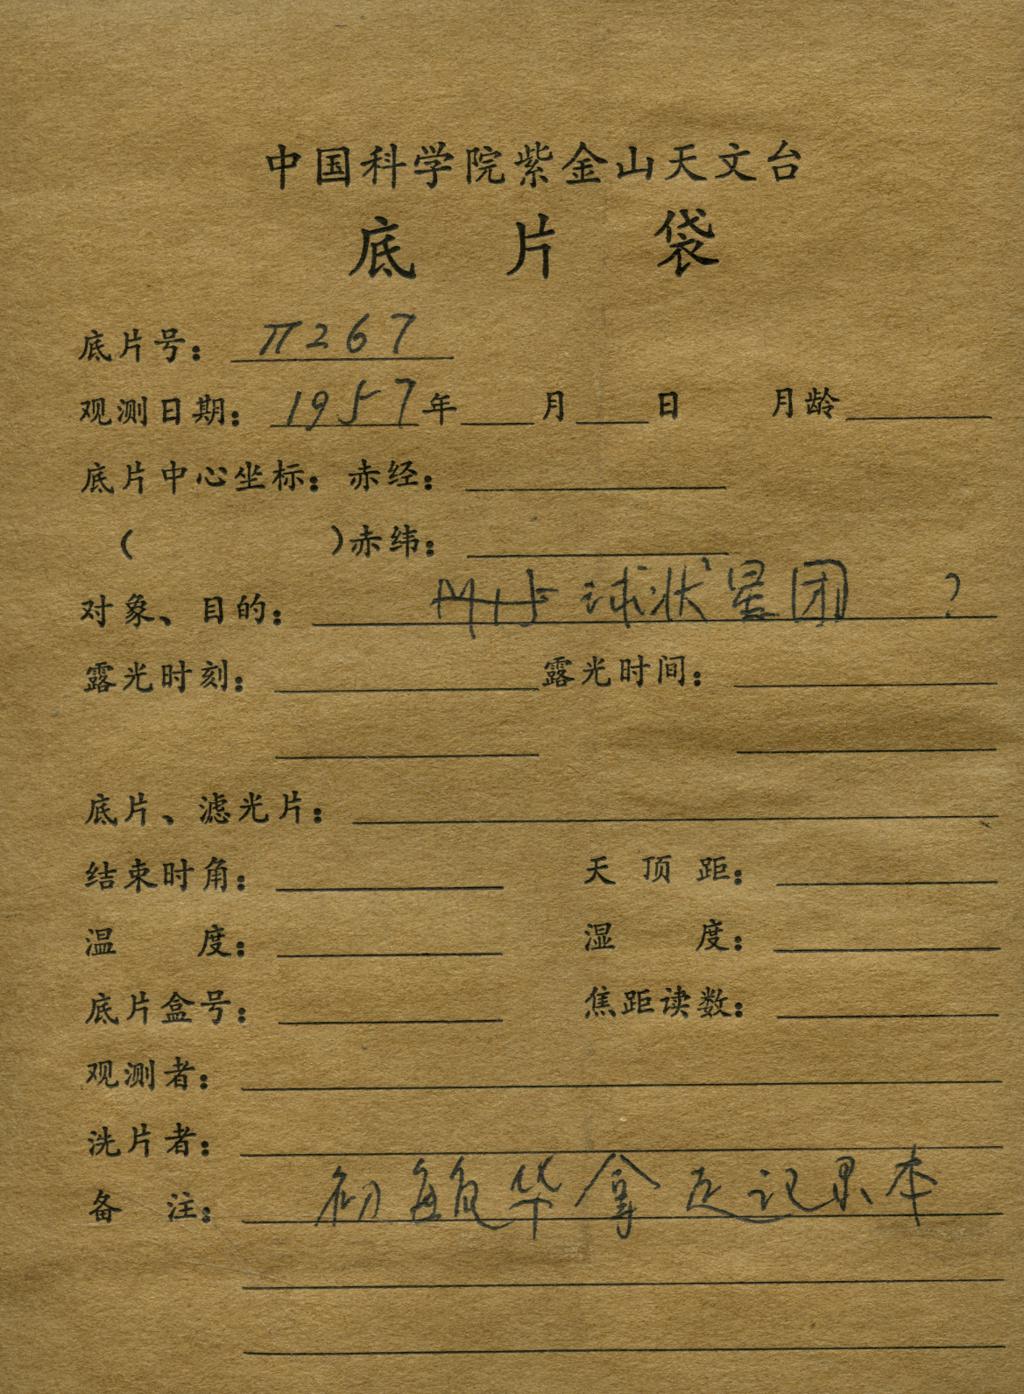 中国科学院紫金山天文台
底片袋
底片号： π267
观测日期： 1957年 月 日 月龄
底片中心坐标：赤经：
( )赤纬：
对象、目的： M15 球状星团 ?
露光时刻： 露光时间：
底片、滤光片：
结束时角： 天顶距：
温度： 湿度：
底片盒号： 焦距读数：
观测者：
洗片者：
备注： 初毓华拿 记录本